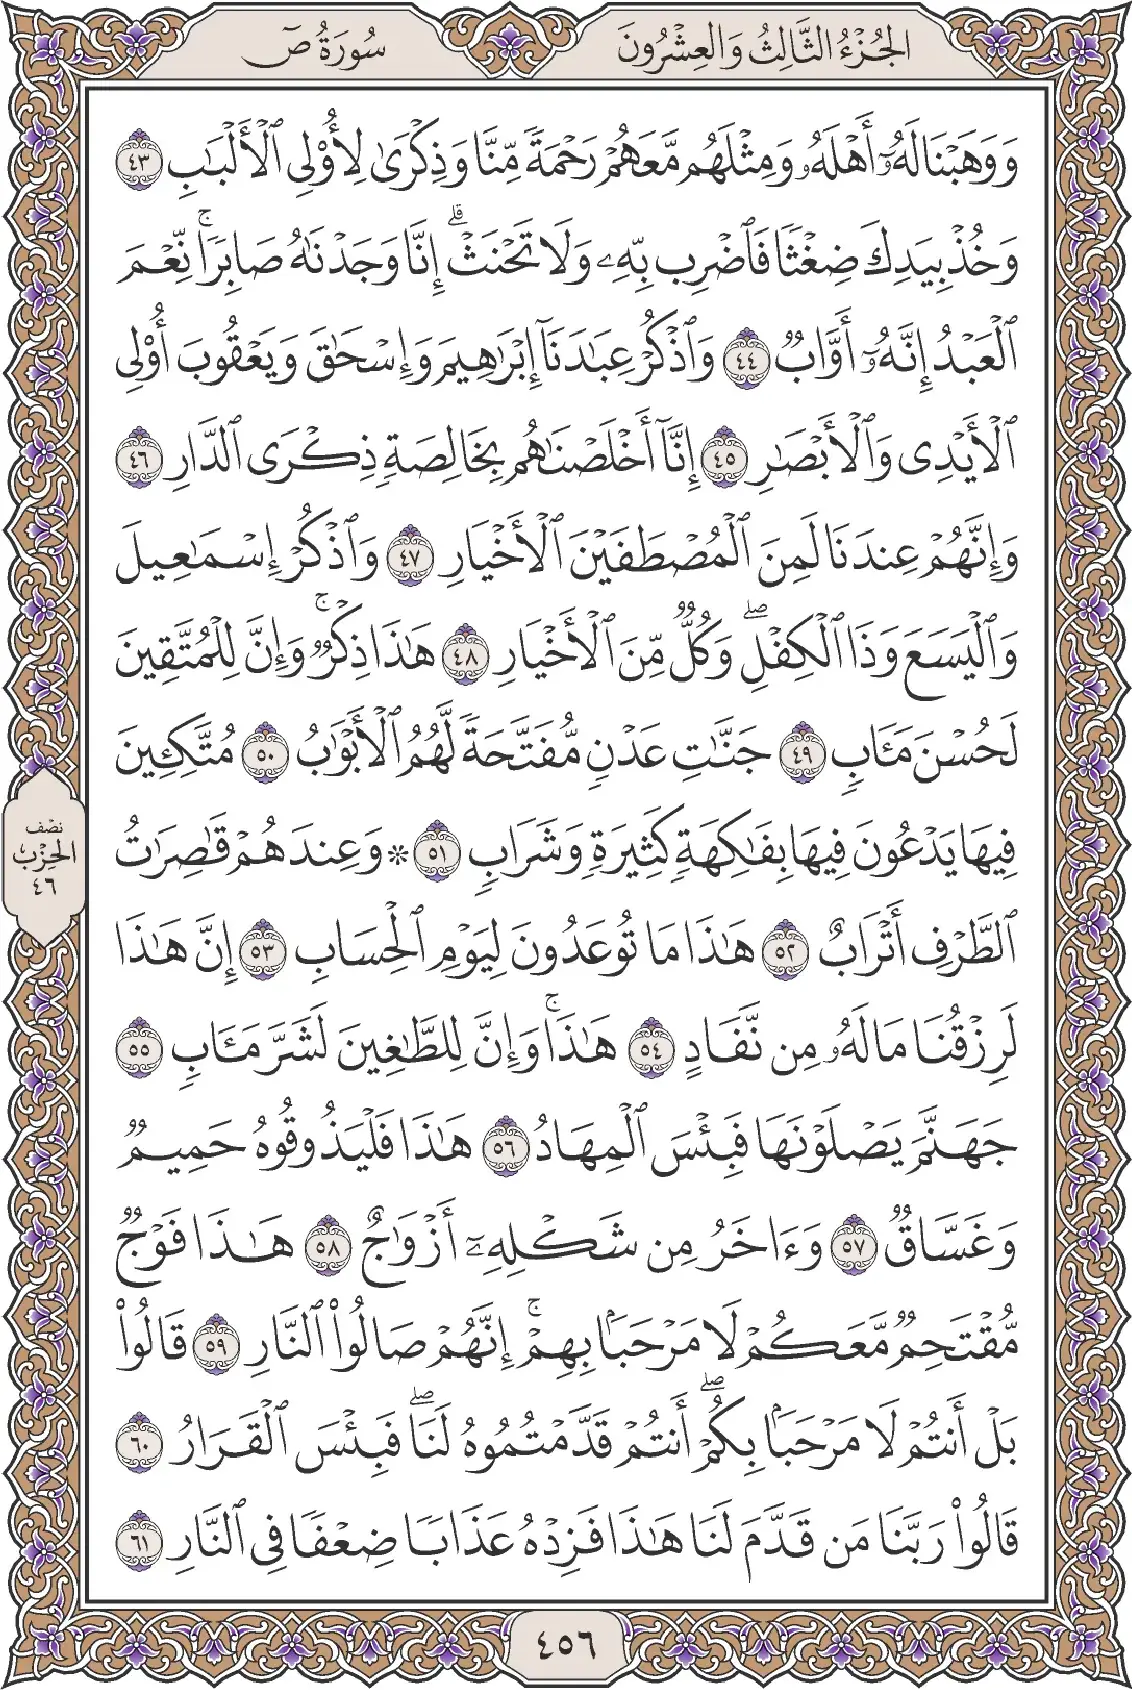 الجُزْءُ الثَّالِثُ وَالعِشْرُونَ
سُورَةُ صٓ
وَوَهَبْنَا لَهُۥٓ أَهْلَهُۥ وَمِثْلَهُم مَّعَهُمْ رَحْمَةً مِّنَّا وَذِكْرَىٰ لِأُو۟لِى ٱلْأَلْبَٰبِ ٤٣
وَخُذْ بِيَدِكَ ضِغْثًا فَٱضْرِب بِّهِۦ وَلَا تَحْنَثْ ۗ إِنَّا وَجَدْنَٰهُ صَابِرًا ۚ نِّعْمَ
ٱلْعَبْدُ إِنَّهُۥٓ أَوَّابٌ ٤٤ وَٱذْكُرْ عِبَٰدَنَآ إِبْرَٰهِيمَ وَإِسْحَٰقَ وَيَعْقُوبَ أُو۟لِى
ٱلْأَيْدِى وَٱلْأَبْصَٰرِ ٤٥ إِنَّآ أَخْلَصْنَٰهُم بِخَالِصَةٍ ذِكْرَى ٱلدَّارِ ٤٦
وَإِنَّهُمْ عِندَنَا لَمِنَ ٱلْمُصْطَفَيْنَ ٱلْأَخْيَارِ ٤٧ وَٱذْكُرْ إِسْمَٰعِيلَ
وَٱلْيَسَعَ وَذَا ٱلْكِفْلِ ۖ وَكُلٌّ مِّنَ ٱلْأَخْيَارِ ٤٨ هَٰذَا ذِكْرٌ ۚ وَإِنَّ لِلْمُتَّقِينَ
لَحُسْنَ مَـَٔابٍ ٤٩ جَنَّٰتِ عَدْنٍ مُّفَتَّحَةً لَّهُمُ ٱلْأَبْوَٰبُ ٥٠ مُتَّكِـِٔينَ
فِيهَا يَدْعُونَ فِيهَا بِفَٰكِهَةٍ كَثِيرَةٍ وَشَرَابٍ ٥١ * وَعِندَهُمْ قَٰصِرَٰتُ
ٱلطَّرْفِ أَتْرَابٌ ٥٢ هَٰذَا مَا تُوعَدُونَ لِيَوْمِ ٱلْحِسَابِ ٥٣ إِنَّ هَٰذَا
لَرِزْقُنَا مَا لَهُۥ مِن نَّفَادٍ ٥٤ هَٰذَا ۚ وَإِنَّ لِلطَّٰغِينَ لَشَرَّ مَـَٔابٍ ٥٥
جَهَنَّمَ يَصْلَوْنَهَا فَبِئْسَ ٱلْمِهَادُ ٥٦ هَٰذَا فَلْيَذُوقُوهُ حَمِيمٌ
وَغَسَّاقٌ ٥٧ وَءَاخَرُ مِن شَكْلِهِۦٓ أَزْوَٰجٌ ٥٨ هَٰذَا فَوْجٌ
مُّقْتَحِمٌ مَّعَكُمْ لَا مَرْحَبًۢا بِهِمْ ۚ إِنَّهُمْ صَالُوا۟ ٱلنَّارِ ٥٩ قَالُوا۟
بَلْ أَنتُمْ لَا مَرْحَبًۢا بِكُمْ ۖ أَنتُمْ قَدَّمْتُمُوهُ لَنَا ۖ فَبِئْسَ ٱلْقَرَارُ ٦٠
قَالُوا۟ رَبَّنَا مَن قَدَّمَ لَنَا هَٰذَا فَزِدْهُ عَذَابًا ضِعْفًا فِى ٱلنَّارِ ٦١
نصْف
الحِزْب
٤٦
٤٥٦